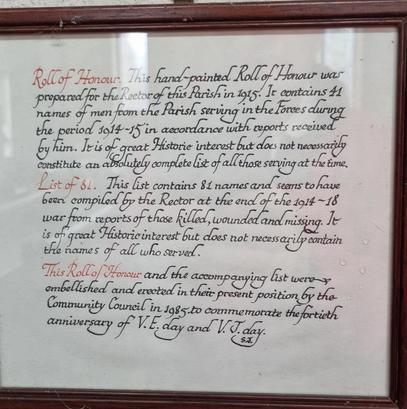 Roll of Honour. This hand-painted Roll of Honour was
prepared for the Rector of this Parish in 1915. It contains 41
names of men from the Parish serving in the Forces during
the period 1914-15 in accordance with reports received
by him. It is of great Historic interest but does not necessarily
constitute an absolutely complete list of all those serving at the time.
List of 81. This list contains 81 names and seems to have
been compiled by the Rector at the end of the 1914-18
war from reports of those killed, wounded and missing. It
is of great Historic interest but does not necessarily contain
the names of all who served.
This Roll of Honour and the accompanying list were
embellished and erected in their present position by the
Community Council in 1985 to commemorate the fortieth
anniversary of V.E. day and V.J. day.
S.J.